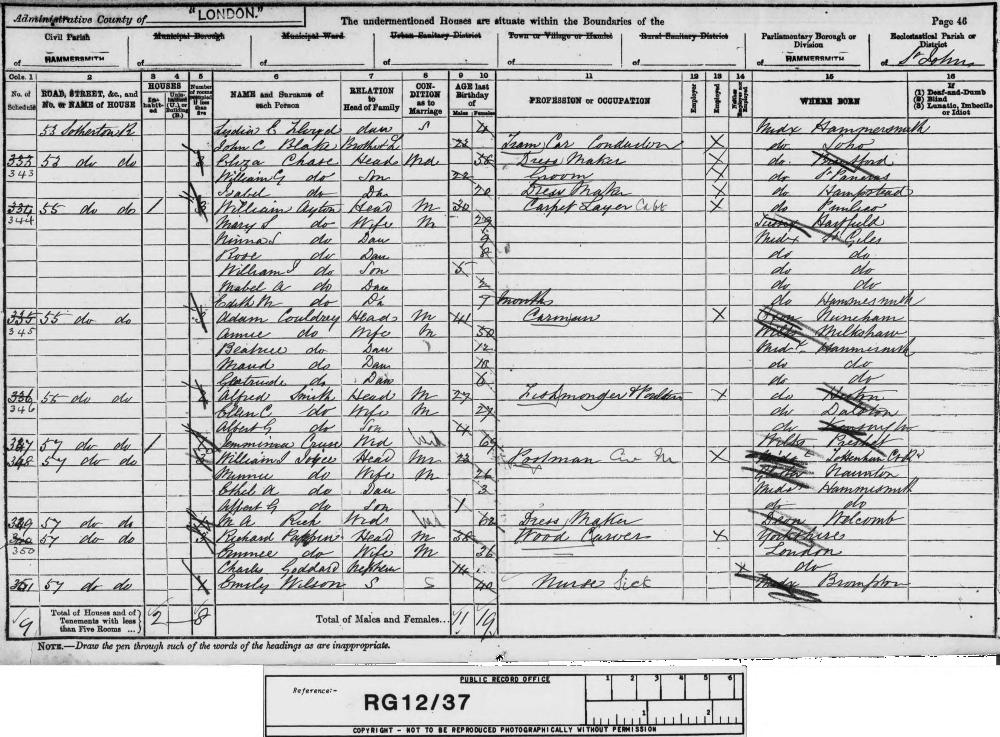 Administrative County of "LONDON." The undermentioned Houses are situate within the Boundaries of the Page 46
Civil Parish Municipal Borough Municipal Ward Urban Sanitary District Town or Village or Hamlet Rural Sanitary District Parliamentary Borough or Division Ecclesiastical Parish or District
of HAMMERSMITH of of of of of of HAMMERSMITH of St Johns
Cols. 1 2 3 4 5 6 7 8 9 10 11 12 13 14 15 16
No. of Schedule ROAD, STREET, &c., and No. or NAME of HOUSE HOUSES Inhabited Uninhabited (U.) or Building (B.) Number of rooms occupied if less than five NAME and Surname of each Person RELATION to Head of Family CONDITION as to Marriage AGE last Birthday of Males Females PROFESSION or OCCUPATION Employer Employed Neither Employer nor Employed WHERE BORN If (1) Deaf-and-Dumb (2) Blind (3) Lunatic, Imbecile or Idiot
53 Lydia E Lloyd dau S Midx Hammersmith
John C Blake 23 Tram Car Conductor X do Soho
343 53 do do Eliza Chase Head Wid 58 Dress Maker X do Brentford
William G do Son 22 Groom X do St Pancras
Isabel do Da 20 Dress Maker X do Hampstead
344 55 do do 1 William Ayton Head M 30 Carpet Layer X do Pimlico
Mary S do Wife M Hartfield
Minna S do Dau 9 Midx St Giles
Rose do Dau 8 do do
William J do Son 5 do do
Mabel A do Dau 2 do do
Edith M do Da 9 months do Hammersmith
345 55 do do Adam Couldrey Head M 41 Carman X Nuneham
Annie do Wife M 50 Wilts
Beatrice do Dau 12 Midx Hammersmith
Maud do Dau 10 do do
Gertrude do Dau 6 do do
346 55 do do Alfred Smith Head M 27 Fishmonger & Poulterer X do Heston
Ellen C do Wife M 27 do Dalston
Albert G do Son 4 do
347 57 do do 1 Jemmima Cruse Wid 69 Wilts
348 57 do do William J Joyce Head M 23 Pootman X Tottenham
Minnie do Wife M 26 Naunton
Ethel A do Dau 3 Midx Hammersmith
Albert G do Son 1 do do
349 57 do do M A Rich Wid 62 Dress Maker Devon Welcomb
350 57 do do Richard Head M 38 Wood Carver X Yorkshire
Emmee do Wife M 36 London
Charles Goddard Nephew 14 X do
351 57 do do Emily Wilson S S 40 Nurse Sick Midx Brompton
19 Total of Houses and of Tenements with less than Five Rooms ... 2 8 Total of Males and Females... 11 19
NOTE.—Draw the pen through such of the words of the headings as are inappropriate.
PUBLIC RECORD OFFICE 1 2 3 4 5 6
Reference:- RG12/37 1 2
COPYRIGHT - NOT TO BE REPRODUCED PHOTOGRAPHICALLY WITHOUT PERMISSION